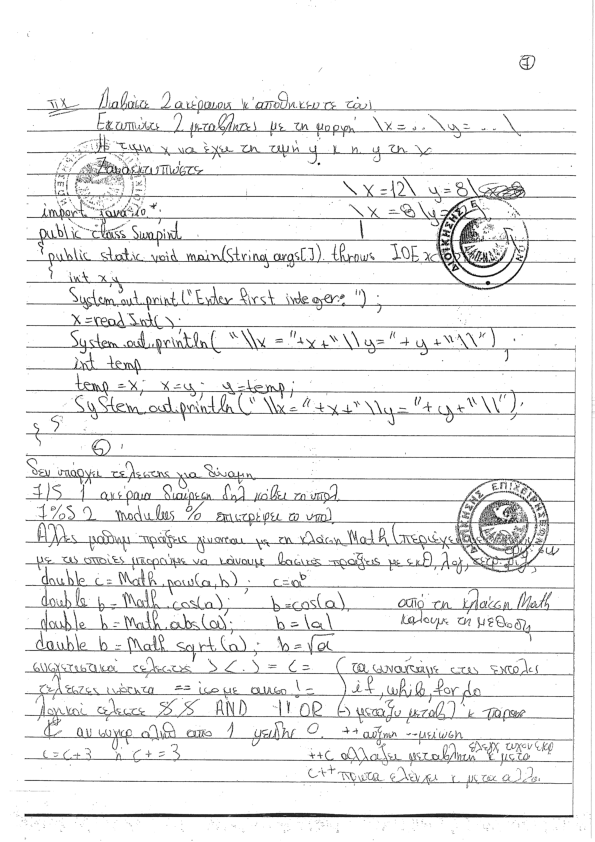 7
ΠΧ Διαβάστε 2 ακέραιους κ' αποθηκεύστε τους
Εκτυπώστε 2 μεταβλητές με τη μορφή \x=.. \y=.. \
Η τιμη x να έχει τη τιμή y κ η y τη x
Ξαναεκτυπώστε
\x=12\ y=8\
import java.io*; \x=8\y=
public class SwapInt
{public static void main(String args[]) throws IOExc
{ int x,y
System.out.print("Enter first integer: ");
x=readInt();
System.out.println( "\\x = "+x+"\\y="+y+"\\");
int temp
temp=x; x=y; y=temp;
System.out.println("\\x="+x+"\\y="+y+"\\");
} }
δεν υπάρχει τελεστης για δύναμη
7/5 1 ακέραια διαίρεση δηλ κόβει το υπολ
7%5 2 modulus % επιστρέφει το υπολ
Άλλες μαθημ πράξεις γίνονται με τη κλάση Math (περιέχει
με τις οποίες μπορούμε να κάνουμε βασικές πράξεις με εκθ, λογ,
double c=Math.pow(a,b); c=a^b
double b=Math.cos(a); b=cos(a), από τη κλάση Math
double b=Math.abs(a); b=|a| καλούμε τη μέθοδο
double b=Math sqrt(a); b=√a
συσχετιστικοί τελεστές > < τα συναντάμε στις εντολές
τελεστές ισότητα == ισο με αυτο != if, while, for do
Λογικοί τελεστε && AND || OR → μεταξύ μεταβλ κ παραστ
αν συγκρ αληθ απο 1 ψευδης 0. ++αύξηση --μείωση
c=c+3 ή c+=3 ++c αλλάζει μεταβλητη κ μετα
c++ πρώτα ελέγχει κ μετα αλλα